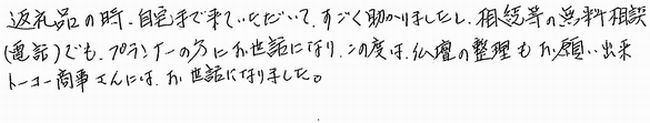 返礼品の時、自宅まで来ていただいて、すごく助かりましたし、相続等の無料相談
(電話)でも、プランナーの方にお世話になり、この度は、仏壇の整理もお願い出来
トーコー商事さんには、お世話になりました。